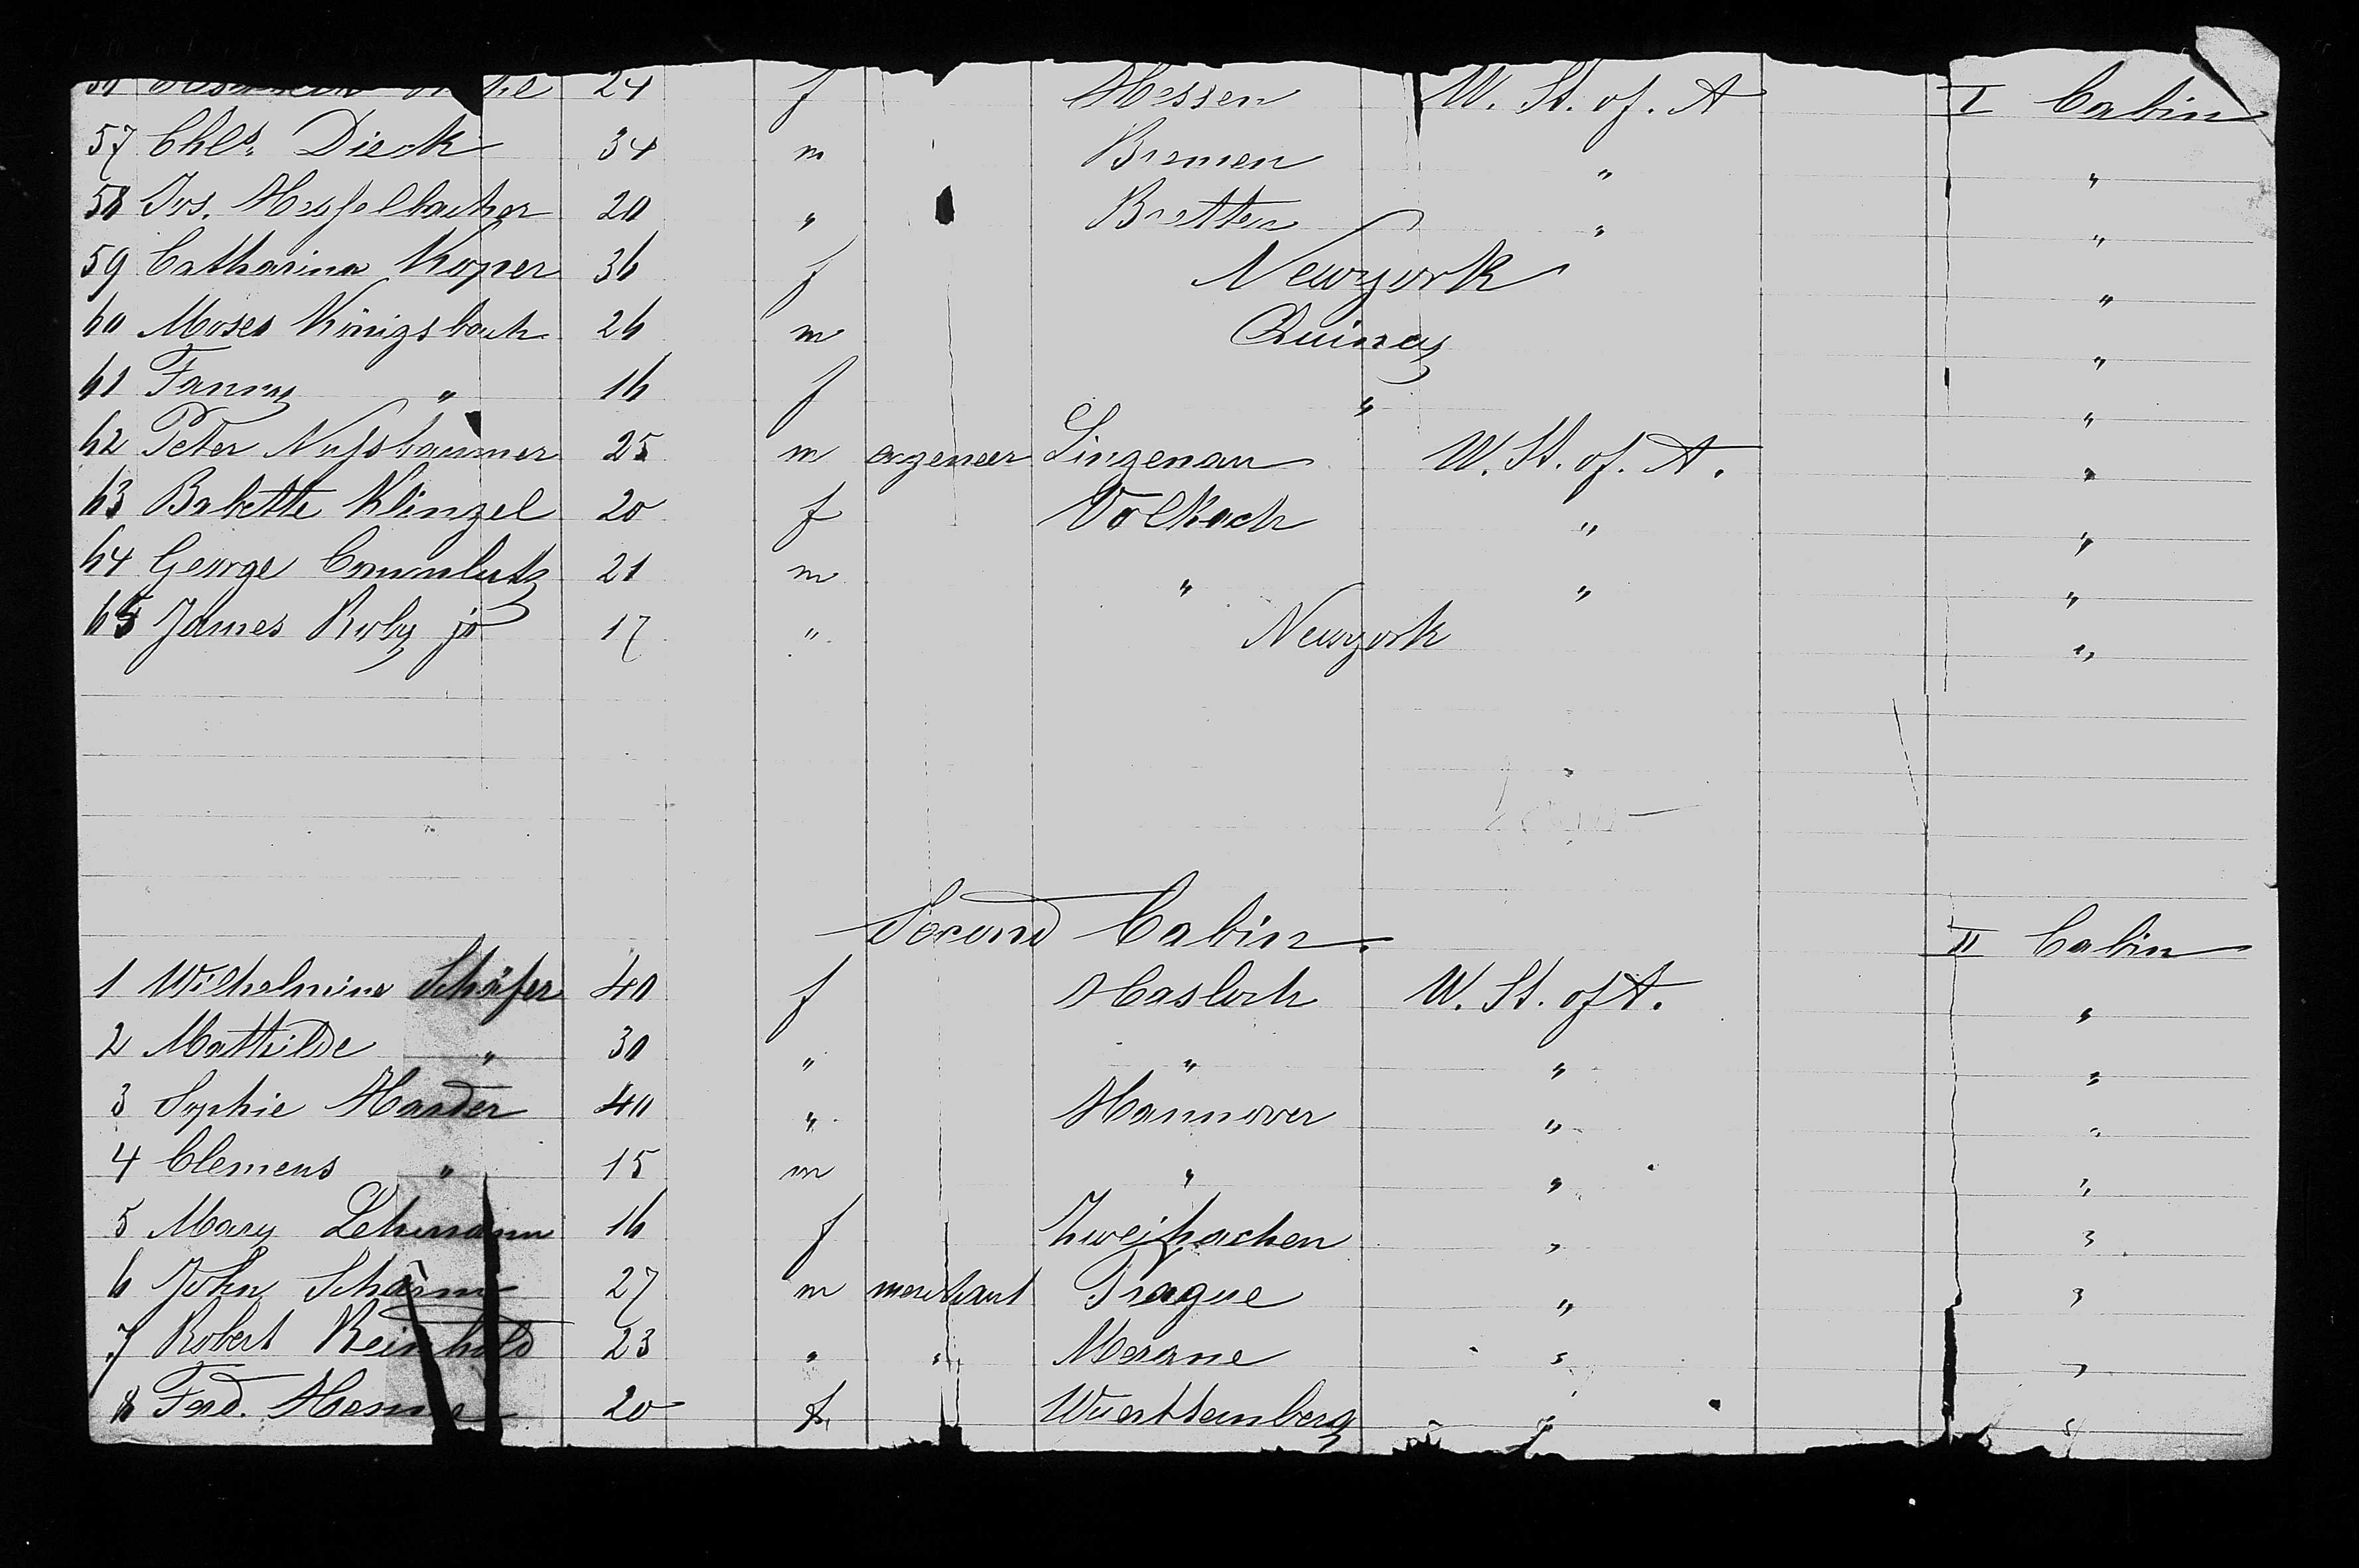 24 f Hessen U. St. of. A I Cabin
57 Chls. Dieck 34 m Bremen " "
58 Jos. Hesselbacher 20 " Bretten " "
59 Catharina Koper 36 f Newyork "
60 Moses Königsbach 26 m Quincy "
61 Fanny " 16 f " "
62 Peter Nussbaumer 25 m engeneer Lingenau U. St. of. A. "
63 Babette Klingel 20 f Volkach " "
64 George 21 m " " "
65 James Ruby jr 17 " Newyork "
Second Cabin. II Cabin
1 Wilhelmine Schäfer 40 f Hasloch U. St. of A. "
2 Mathilde " 30 " " " "
3 Sophie Harder 40 " Hannover " "
4 Clemens " 15 m " " "
5 Mary Lehmann 16 f " "
6 John 27 m merchant Prague " "
7 Robert Reinhold 23 " " Merane " "
8 Ferd. 20 Wuerttemberg " "